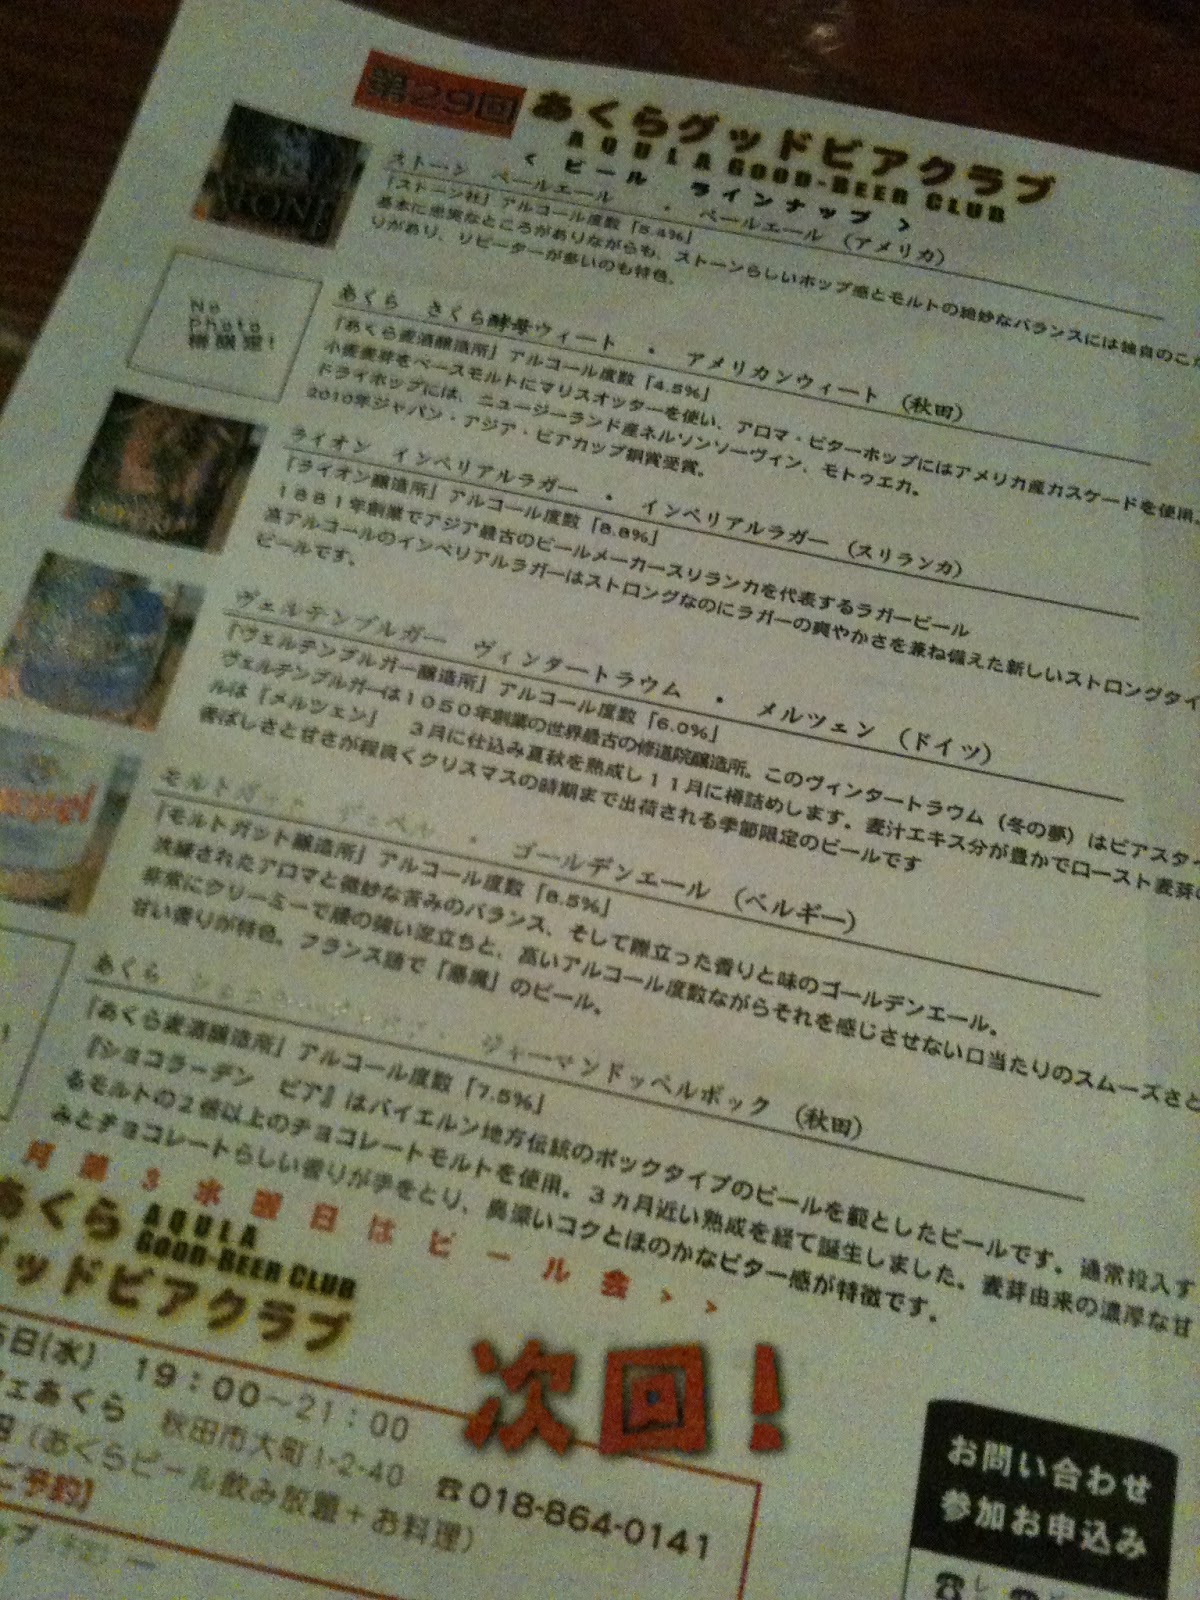 第29回 あくらグッドビアクラブ
AQULA GOOD-BEER CLUB
< ビール ラインナップ >
ストーン ペールエール ・ ペールエール (アメリカ)
「ストーン社」アルコール度数「5.4%」
基本に忠実なところがありながらも、ストーンらしいホップ感とモルトの絶妙なバランスには独自のこだ
りがあり、リピーターが多いのも特色。
No
Photo
樽限定!
あくら さくら酵母ウィート ・ アメリカンウィート (秋田)
「あくら麦酒醸造所」アルコール度数「4.5%」
小麦麦芽をベースモルトにマリスオッターを使い、アロマ・ビターホップにはアメリカ産カスケードを使用。
ドライホップには、ニュージーランド産ネルソンソーヴィン、モトゥエカ。
2010年ジャパン・アジア・ビアカップ銅賞受賞。
ライオン インペリアルラガー ・ インペリアルラガー (スリランカ)
「ライオン醸造所」アルコール度数「8.8%」
1881年創業でアジア最古のビールメーカースリランカを代表するラガービール
高アルコールのインペリアルラガーはストロングなのにラガーの爽やかさを兼ね備えた新しいストロングタイ
ビールです。
ヴェルテンブルガー ヴィンタートラウム ・ メルツェン (ドイツ)
「ヴェルテンブルガー醸造所」アルコール度数「6.0%」
ヴェルテンブルガーは1050年創業の世界最古の修道院醸造所。このヴィンタートラウム(冬の夢)はビアスタイ
ルは『メルツェン』 3月に仕込み夏秋を熟成し11月に樽詰めします。麦汁エキス分が豊かでロースト麦芽の
香ばしさと甘さが程良くクリスマスの時期まで出荷される季節限定のビールです
モルトガット デュベル ・ ゴールデンエール (ベルギー)
「モルトガット醸造所」アルコール度数「8.5%」
洗練されたアロマと微妙な苦みのバランス、そして際立った香りと味のゴールデンエール。
非常にクリーミーで腰の強い泡立ちと、高いアルコール度数ながらそれを感じさせない口当たりのスムーズさと
甘い香りが特色。フランス語で「悪魔」のビール。
あくら ・ ジャーマンドッペルボック (秋田)
「あくら麦酒醸造所」アルコール度数「7.5%」
『ショコラーデン ビア』はバイエルン地方伝統のボックタイプのビールを範としたビールです。通常投入す
るモルトの2倍以上のチョコレートモルトを使用。3ヵ月近い熟成を経て誕生しました。麦芽由来の濃厚な甘
みとチョコレートらしい香りが手をとり、奥深いコクとほのかなビター感が特徴です。
月第3水曜日はビール会>>
あくら AQULA
GOOD-BEER CLUB
グッドビアクラブ
次回!
5日(水) 19:00~21:00
ェあくら 秋田市大町1-2-40 ☎018-864-0141
(あくらビール飲み放題+お料理)
ご予約】
お問い合わせ
参加お申込み